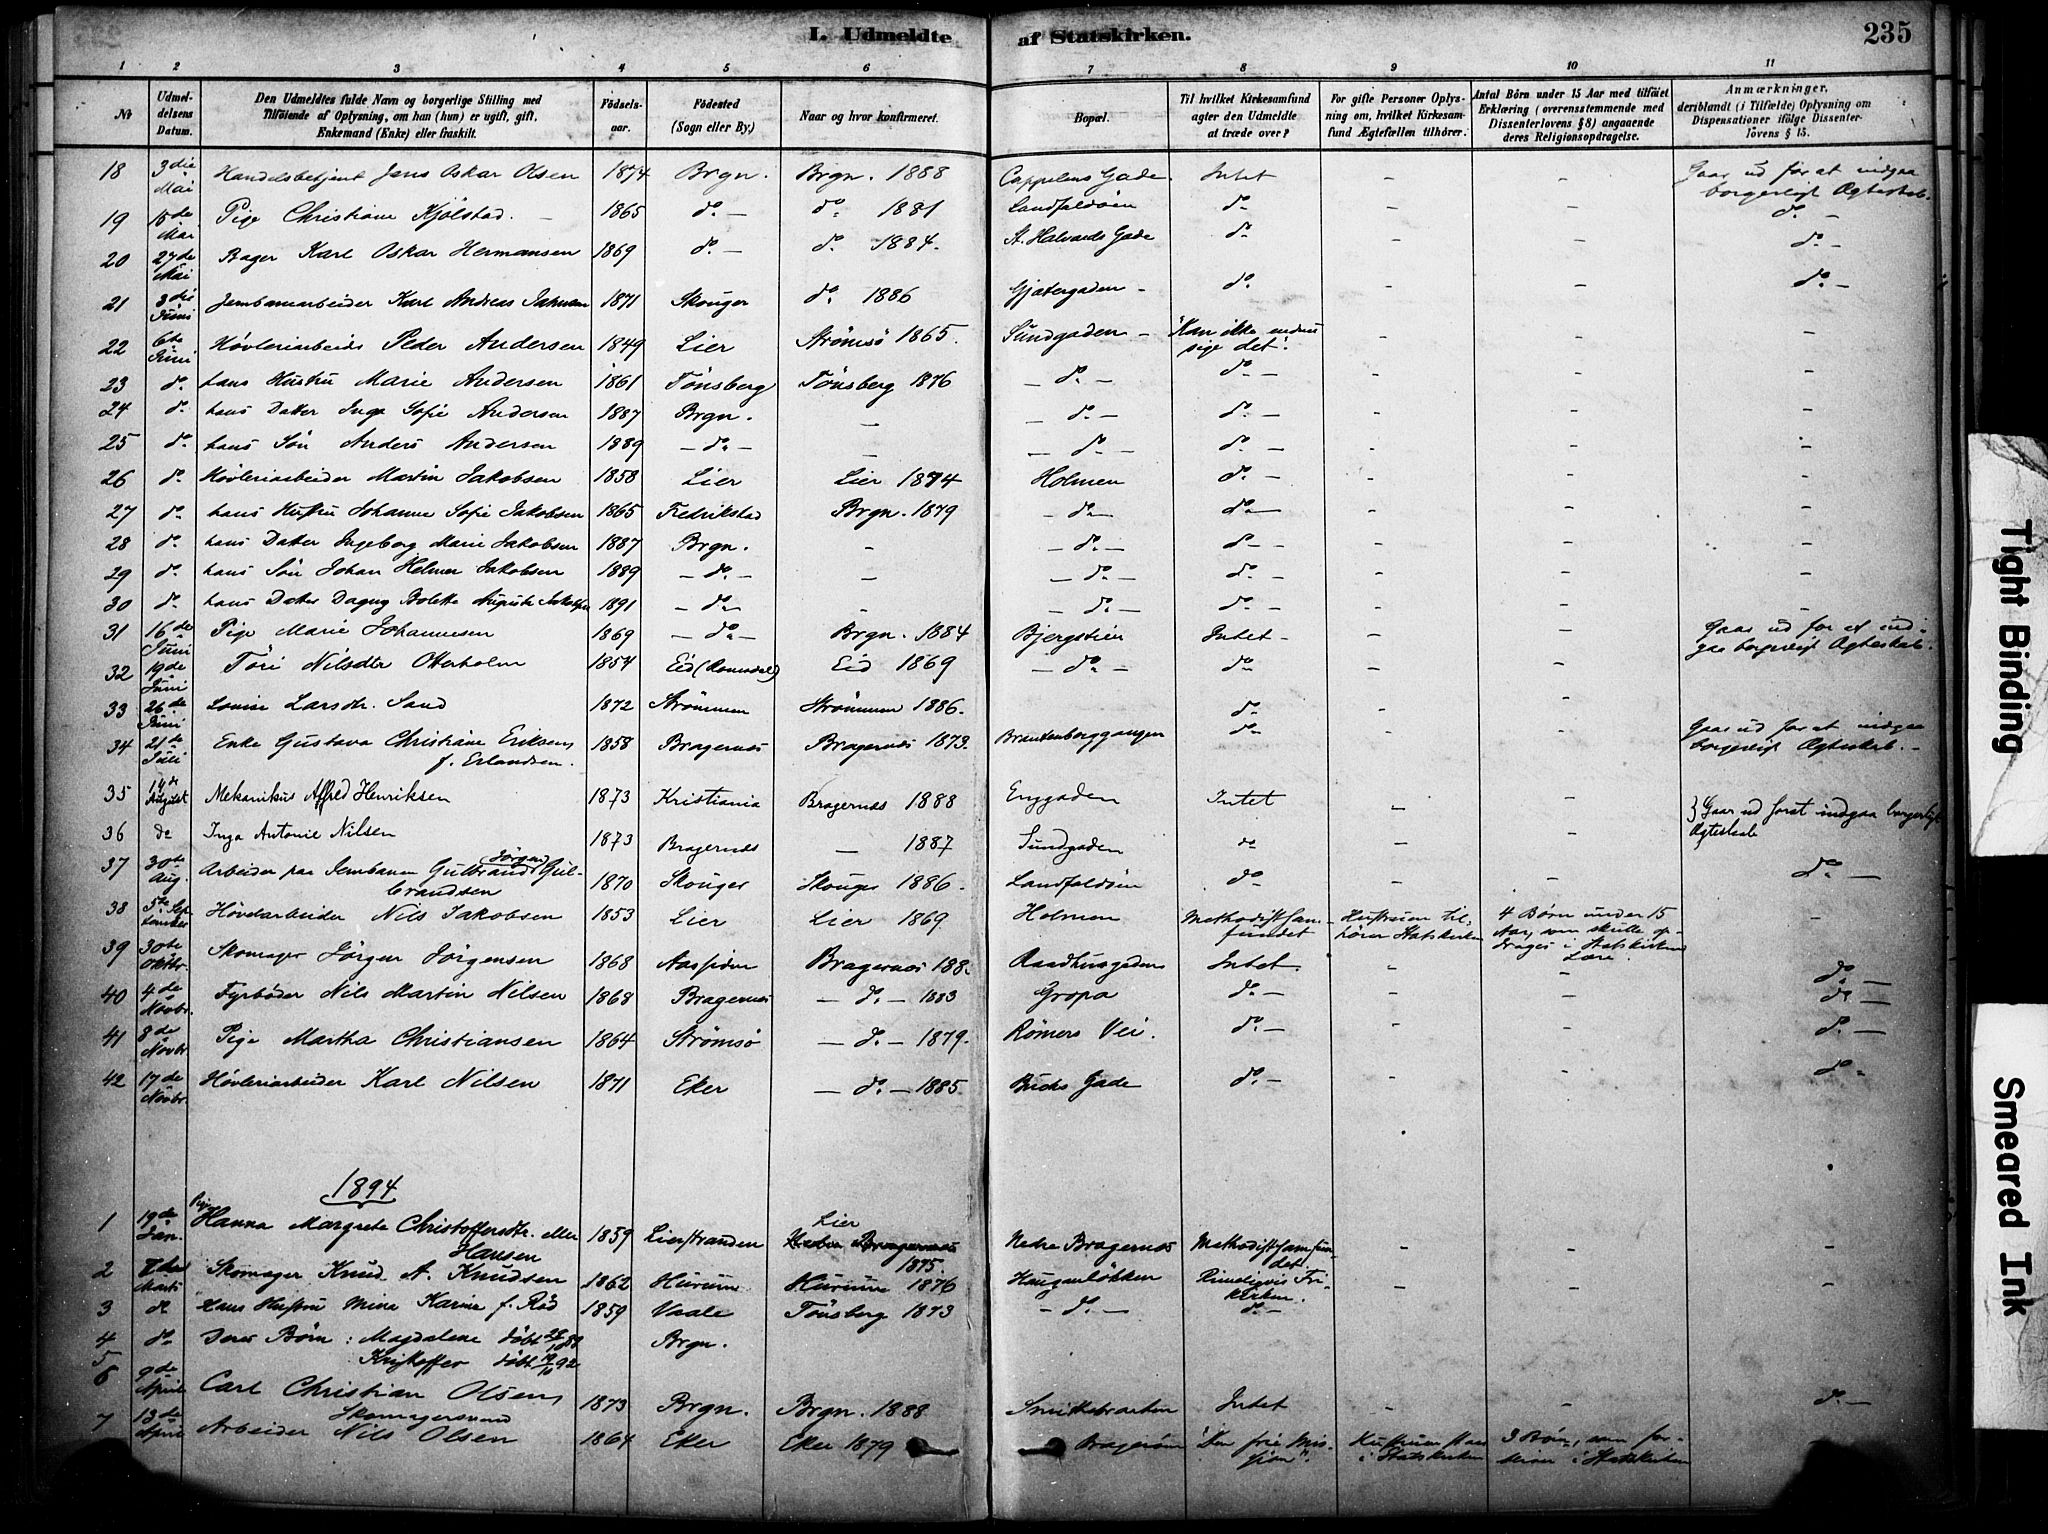 I. Udmeldte af Statskirken. 235
1 2 3 4 5 6 7 8 9 10 11
No
Udmeldelsens Datum.
Den Udmeldtes fulde Navn og borgerlige Stilling med
Tilföiende af Oplysning, om han (hun) er ugift, gift,
Enkemand (Enke) eller fraskilt.
Födselsaar.
Födested
(Sogn eller By.)
Naar og hvor konfirmeret.
Bopæl.
Til hvilket Kirkesamfund
agter den Udmeldte
at træde over?
For gifte Personer Oplysning
om, hvilket Kirkesamfund
Ægtefællen tilhörer.
Antal Börn under 15 Aar med tilföiet
Erklæring (overensstemmende med
Dissenterlovens § 8) angaaende
deres Religionsopdragelse.
Anmærkninger,
deriblandt (i Tilfælde) Oplysning om
Dispensationer ifölge Dissenterlovens § 15.
18 3die Mai Handelsbetjent Jens Oskar Olsen 1874 Brgn. Brgn. 1888 Cappelens Gade. Intet - - Gaar ud for at indgaa borgerligt Ægteskab.
19 15de Mai Pige Christiane Kjölstad. 1865 do - do 1881 Landfaldöen do - - do -
20 27de Mai Bager Karl Oskar Hermansen 1869 do - do 1884. St. Halvards Gade do - - do -
21 3die Juni Jernbanearbeider Karl Andreas 1871 Skouger do 1886 Gjetergaden - do - - do -
22 6te Juni Hövleriarbeider Peder Andersen 1849 Lier Strömsö 1865. Sundgaden - "Kan ikke endnu sige det". - - -
23 do hans Hustru Marie Andersen 1861 Tönsberg Tönsberg 1876 - do - do - - - -
24 do hans Datter Inga Sofie Andersen 1887 Brgn. - - do - do - - - -
25 do hans Sön Anders Andersen 1889 - do - - - do - do - - - -
26 do Hövleriarbeider Martin Jakobsen 1858 Lier Lier 1874 Holmen do - - - -
27 do hans Hustru Johanne Sofie Jakobsen 1865 Fredrikstad Brgn. 1879 - do - do - - - -
28 do hans Datter Ingeborg Marie Jakobsen 1887 Brgn. - - do - do - - - -
29 do hans Sön Johan Helmer Jakobsen 1889 - do - - - do - do - - - -
30 do hans Datter Dagny Bolette Augusta 1891 - do - - - do - do - - - -
31 16de Juni Pige Marie Johannesen 1869 - do - Brgn. 1884 Bjergstien Intet - - - Gaar ud for at indgaa borgerligt Ægteskab.
32 19de Juni Töri Nilsdter Otterholm 1854 Eid (Romsdal) Eid 1869 - do - do - -
33 26de Juni Louise Larsdtr. Sand 1872 Strömmen Strömmen 1886. do - - -
34 21de Juli Enke Gustava Christiane Eriksen f. Erlandsen. 1858 Bragernes Bragernes 1873. Brantenborggangen do - - - Gaar ud for at indgaa borgerligt Ægteskab. -
35 14de August Mekanikus Alfred Henriksen 1873 Kristiania Bragernes 1888 Enggaden Intet - -
36 do Inga Antonie Nilsen 1873 Bragernes - 1887 Sundgaden do - - } Gaar ud forat indgaa borgerligt Ægteskab
37 30te Aug. Arbeider paa Jernbanen Gulbrand Jörgen Gulbrandsen 1870 Skouger Skouger 1886. Landfaldöen do - - - do -
38 5te September Hövelarbeider Nils Jakobsen 1853 Lier Lier 1869 Holmen Methodistsamfundet Hustruen tilhörer Statskirken 4 Börn under 15 Aar, som skulle opdrages i Statskirkens Lære. -
39 30te Oktbr. Skomager Jörgen Jörgensen 1868 Aassiden Bragernes 188 Raadhusgaden Intet. - - do -
40 4de Novbr. Fyrböder Nils Martin Nilsen 1868 Bragernes - do - 1883 Gropa do - - - do -
41 8de Novbr Pige Martha Christiansen 1864 Strömsö - do - 1879. Römers Vei. do - - - do -
42 17de Novbr. Hövleriarbeider Karl Nilsen 1871 Eker - do - 1885 Bucks Gade do - - - do -
1894
1 19de Jan. Pige Hanna Margrete Christoffersdtr. eller Hansen 1859 Lierstranden Lier 1875. Nedre Bragernes Methodistsamfundet - - -
2 Marts Skomager Knud A. Knudsen 1862 Hurum Hurum 1876 Haugenlökken Rimeligvis Frikirken. - - -
3 do Hans Hustru Mina Karine f. Röd 1859 Vaale Tönsberg 1873 - do - do -
4 do Deres Börn: Magdalene födt 88 Brgn.
5 Kristoffer födt 92
6 9de April Carl Christian Olsen, Skomagersvend 1873 Brgn. Brgn. 1888 Intet - - do -
7 13de April Arbeider Nils Olsen 1864 Eker Eker 1879 Brageröen "Den frie Mission". Hustruen staar i Statskirken 3 Börn, som forbliver i Statskirken
Tight Binding
Smeared Ink